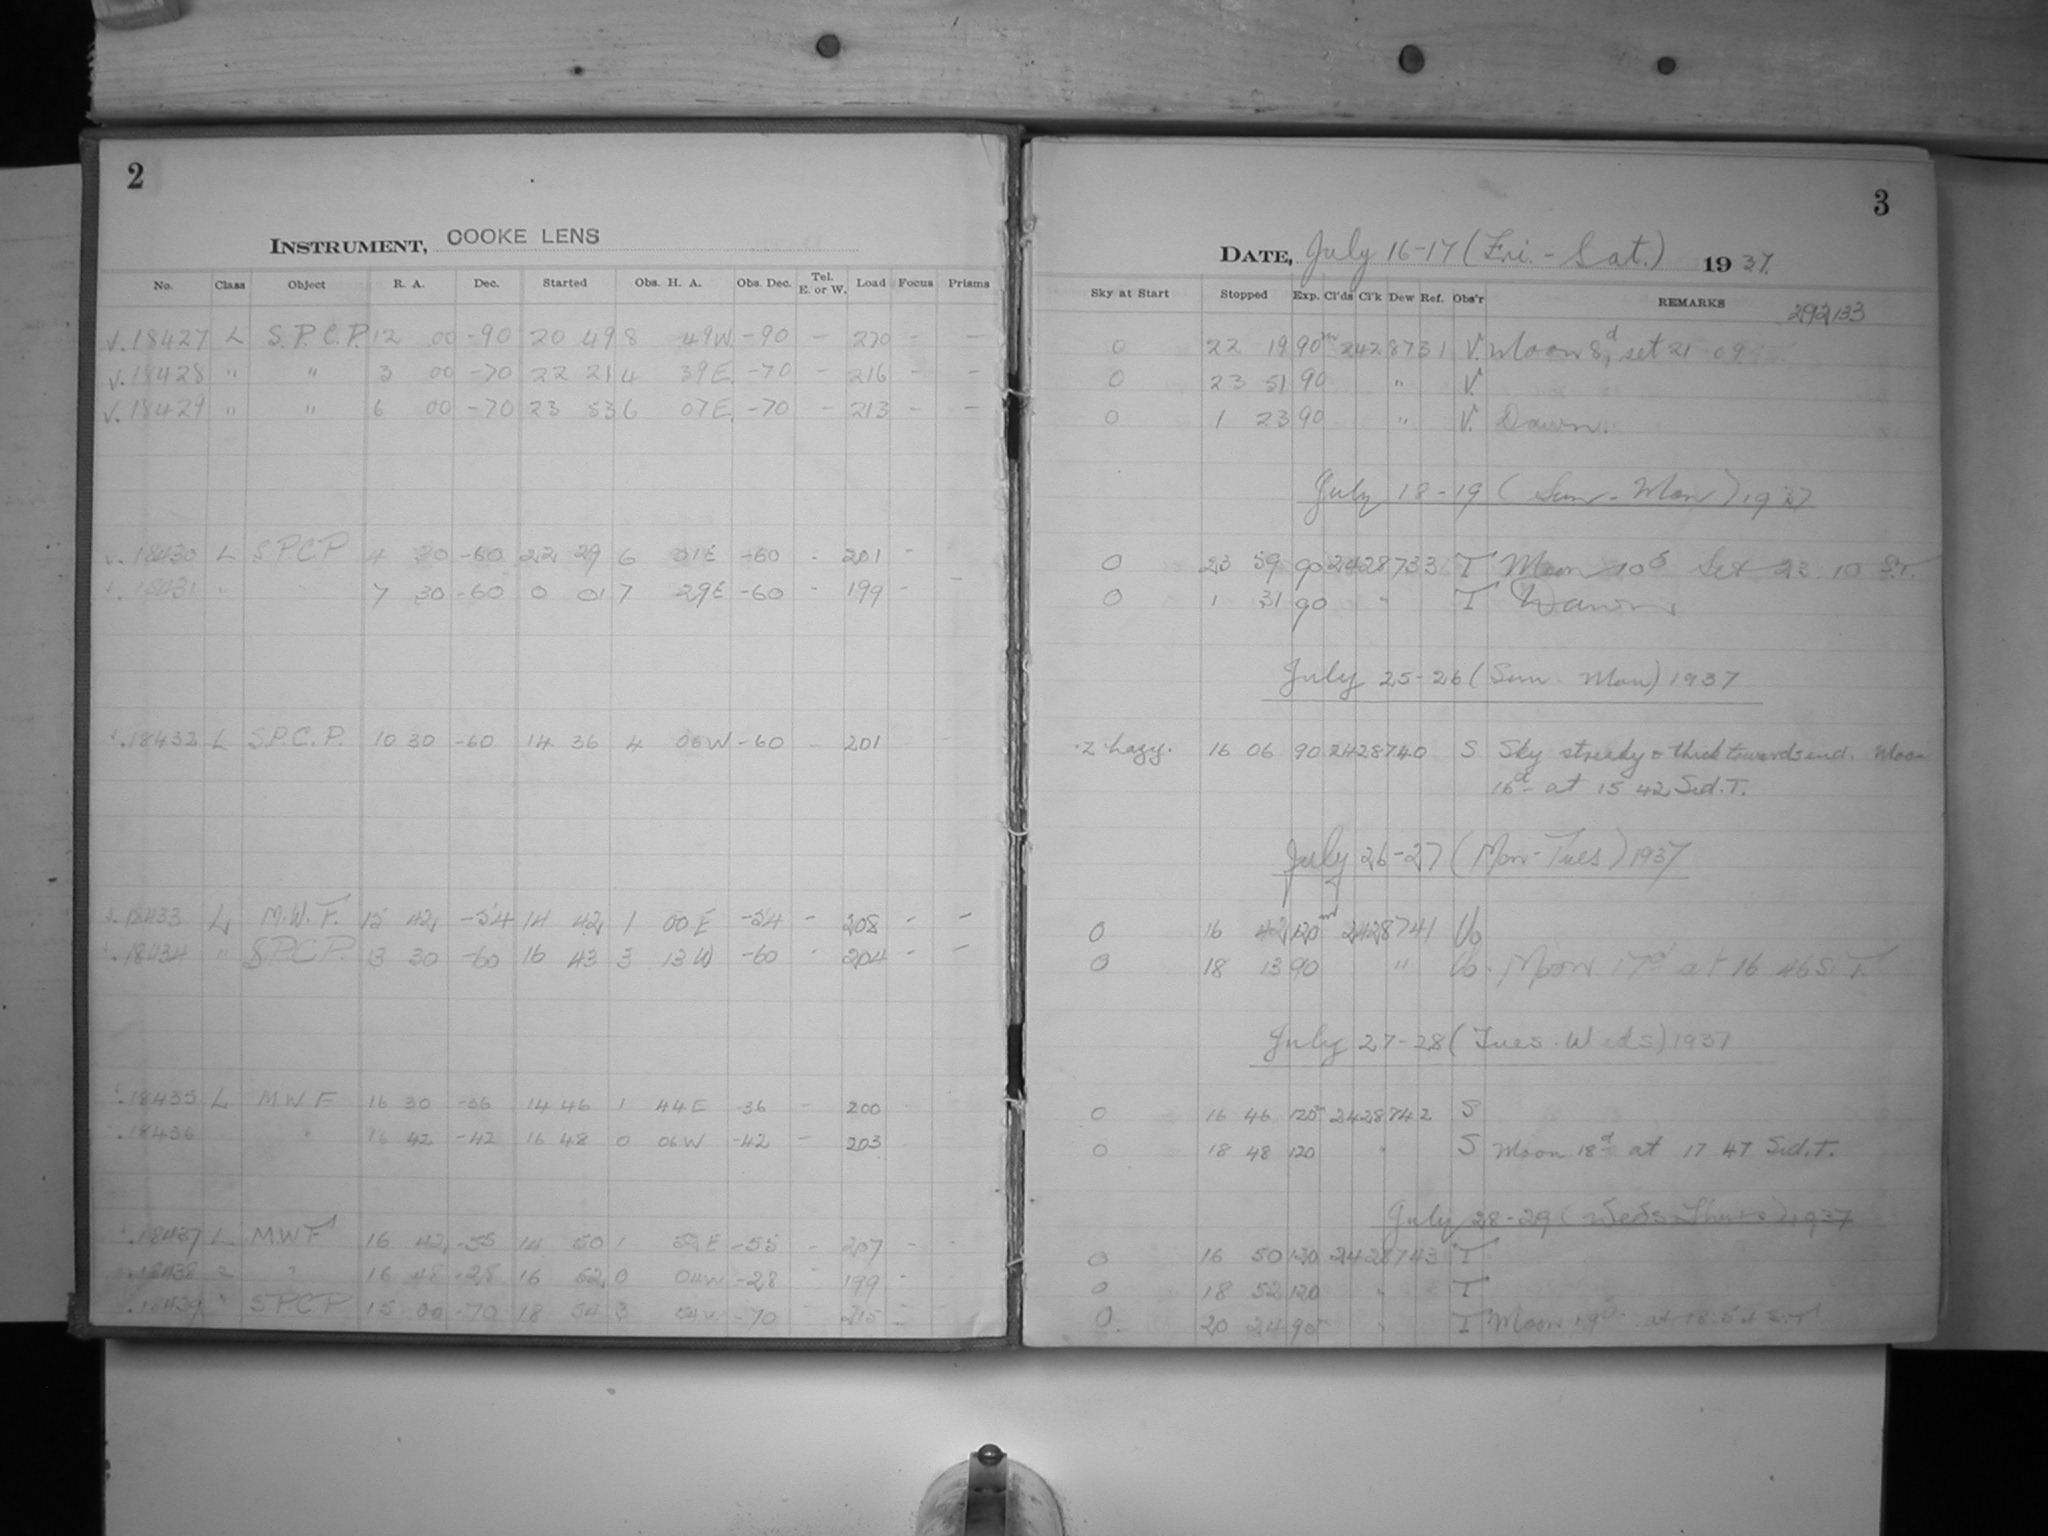 2
INSTRUMENT, COOKE LENS
No. Class Object R. A. Dec. Started Obs. H. A. Obs. Dec. Tel. E. or W. Load Focus Prisms
√.18427 L S.P.C.P. 12 00 -90 20 49 8 49W -90 - 220 - -
√.18428 " " 3 00 -70 22 21 4 39E -70 - 216 - -
√.18429 " " 6 00 -70 23 53 6 07E -70 - 213 - -
18430 L SPCP 4 30 -60 22 29 6 01E -60 - 201 -
18431 " " 7 30 -60 0 01 7 29E -60 - 199 - -
18432 L S.P.C.P. 10 30 -60 14 36 4 06W -60 - 201
18433 L M.W.F. 15 42 -54 14 42 1 00E -54 - 208 - -
18434 " SPCP. 13 30 -60 16 43 3 13W -60 - 204 - -
18435 L MWF 16 30 -36 14 46 1 44E -36 - 200
18436 " 16 42 -42 16 48 0 06W -42 - 203
18437 L MWF 16 42 -55 14 50 1 52E -55 - 207 - -
18438 " " 16 48 -28 16 52 0 04W -28 - 199 -
18439 " SPCP 15 00 -70 18 54 3 54W -70 215 -
3
DATE, July 16-17 (Fri. - Sat.) 1937.
Sky at Start Stopped Exp. Cl'ds Cl'k Dew Ref. Obs'r REMARKS
292133
0 22 19 90m 2428731 V. Moon 8d, set 21 09
0 23 51 90 " V.
0 1 23 90 " V. Dawn.
July 18-19 (Sun - Mon) 1937
0 23 59 90 2428733 T Moon 10d Set 23 10 S.T.
0 1 31 90 " T Dawn
July 25-26 (Sun - Mon) 1937
.z hazy. 16 06 90 2428740 S Sky streaky & thick towards end. Moon
16d at 15 42 Sid. T.
July 26-27 (Mon-Tues) 1937
0 16 42 120m 2428741 Uo
0 18 13 90 " Uo. Moon 17d at 16 46 S.T.
July 27-28 (Tues - Weds) 1937
0 16 46 120m 2428742 S
0 18 48 120 " S Moon 18d at 17 47 Sid. T.
July 28-29 (Weds-Thurs) 1937
0 16 50 120 2428743 T
0 18 52 120 " T
0. 20 24 90m " T Moon 19d at 18